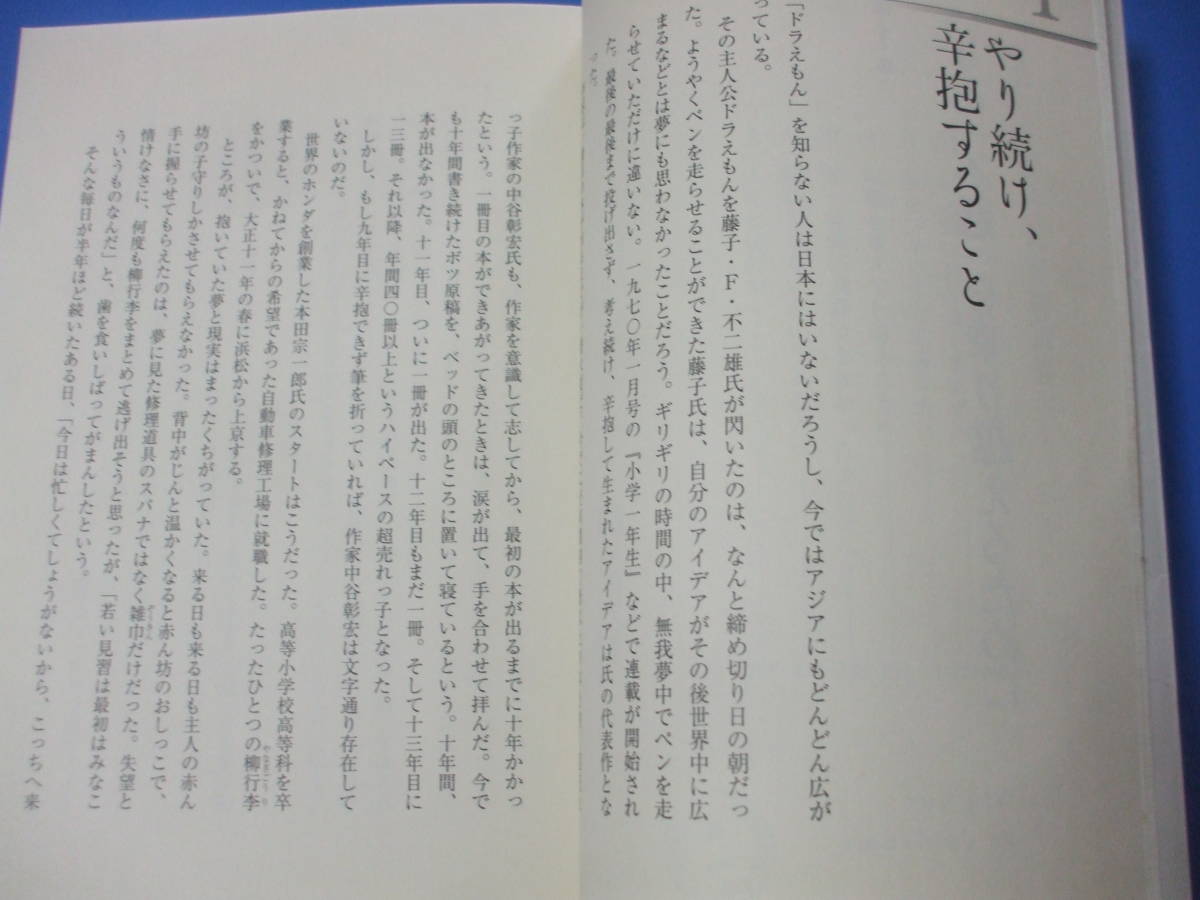 1
やり続け、
辛抱すること
「ドラえもん」を知らない人は日本にはいないだろうし、今ではアジアにもどんどん広が
っている。
その主人公ドラえもんを藤子・F・不二雄氏が閃いたのは、なんと締め切り日の朝だっ
た。ようやくペンを走らせることができた藤子氏は、自分のアイデアがその後世界中に広
まるなどとは夢にも思わなかったことだろう。ギリギリの時間の中、無我夢中でペンを走
らせていただけに違いない。一九七〇年一月号の『小学一年生』などで連載が開始され
た。最後の最後まで投げ出さず、考え続け、辛抱して生まれたアイデアは氏の代表作とな
った。
っ子作家の中谷彰宏氏も、作家を意識して志してから、最初の本が出るまでに十年かかっ
たという。一冊目の本ができあがってきたときは、涙が出て、手を合わせて拝んだ。今で
も十年間書き続けたボツ原稿を、ベッドの頭のところに置いて寝ているという。十年間、
本が出なかった。十一年目、ついに一冊が出た。十二年目もまだ一冊。そして十三年目に
一三冊。それ以降、年間四〇冊以上というハイペースの超売れっ子となった。
しかし、もし九年目に辛抱できず筆を折っていれば、作家中谷彰宏は文字通り存在して
いないのだ。
世界のホンダを創業した本田宗一郎氏のスタートはこうだった。高等小学校高等科を卒
業すると、かねてからの希望であった自動車修理工場に就職した。たったひとつの柳行李
をかついで、大正十一年の春に浜松から上京する。
ところが、抱いていた夢と現実はまったくちがっていた。来る日も来る日も主人の赤ん
坊の子守りしかさせてもらえなかった。背中がじんと温かくなると赤ん坊のおしっこで、
手に握らせてもらえたのは、夢に見た修理道具のスパナではなく雑巾だけだった。失望と
情けなさに、何度も柳行李をまとめて逃げ出そうと思ったが、「若い見習は最初はみなこ
ういうものなんだ」と、歯を食いしばってがまんしたという。
そんな毎日が半年ほど続いたある日、「今日は忙しくてしょうがないから、こっちへ来